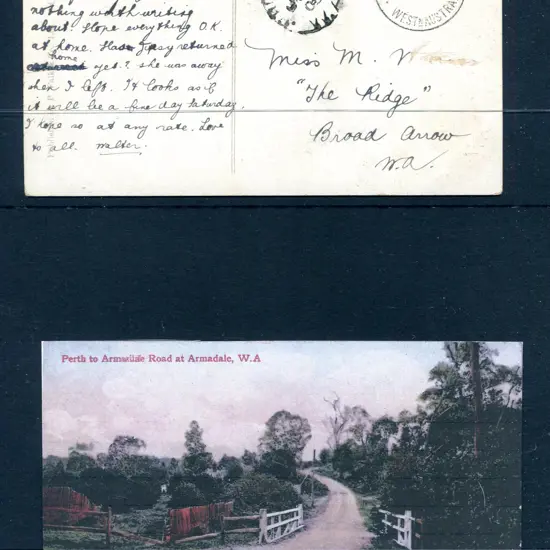 nothing worth writing
about. Hope everything O.K.
at home. Have Tipsy returned
home
yet? She was away
when I left. It looks as if
it will be a fine day Saturday.
I hope so at any rate. Love
to all. Walter.
WESTN AUSTRA
Miss M.
"The Ridge"
Broad Arrow
W.A.
Perth to Armadale Road at Armadale, W.A